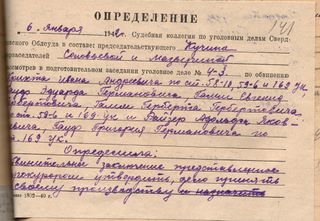 141
ОПРЕДЕЛЕНИЕ
6 января 194 г. Судебная коллегия по уголовным делам Сверд-
ловского Облсуда в составе председательствующего Кучина
нарзаседателей Соловьевой и
рассмотрев в подготовительном заседании уголовное дело № 4-3. по обвинению
Ивана Андреевича по ст. 58-10, 59-6 и 169 УК
Гауф Эдуарда Германовича, Евгения
Гербертовича, Герберта Гербертовича
по ст. 59-6 и 169 УК и Яков-
левича, Гауф Григория Германовича по
ст. 169 УК.
Определила:
Обвинительное заключение представленное
прокурором утвердить, дело принять
к своему производству и назначить